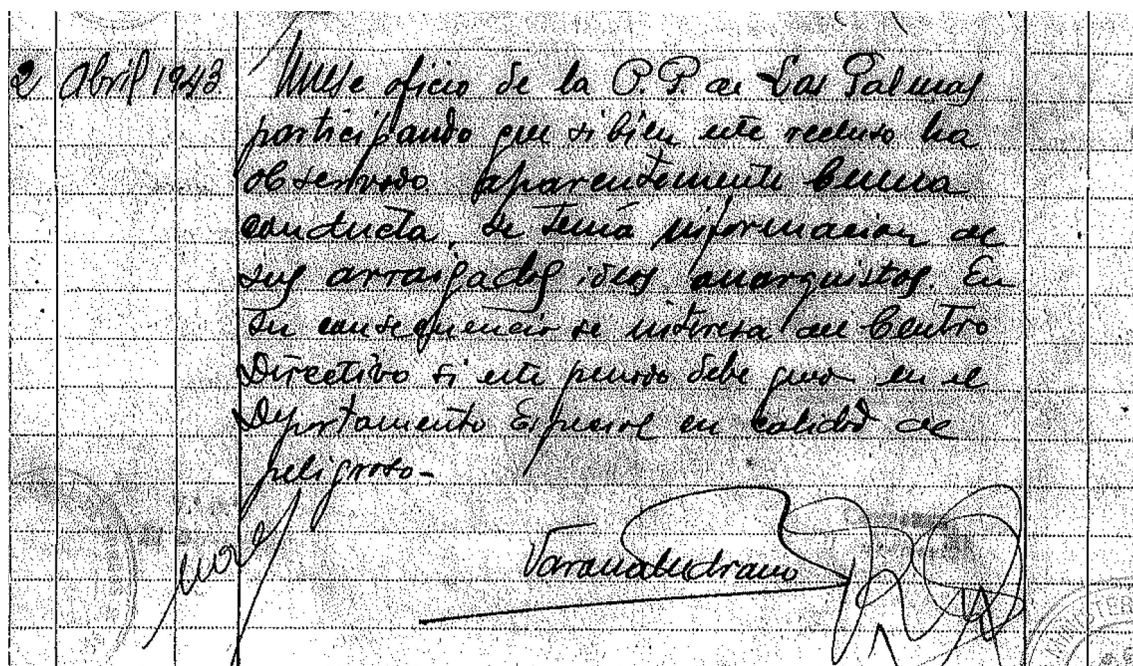 2 Abril 1943 Unese oficio de la P.P. de Las Palmas
participando que si bien este recluso ha
observado aparentemente buena
conducta, se tenia informacion de
sus arraigados ideas anarquistas. En
su consequencia se interesa del Centro
Directivo si este penado debe in en el
Departamento Especial en calidad de
peligroso-
MINISTER